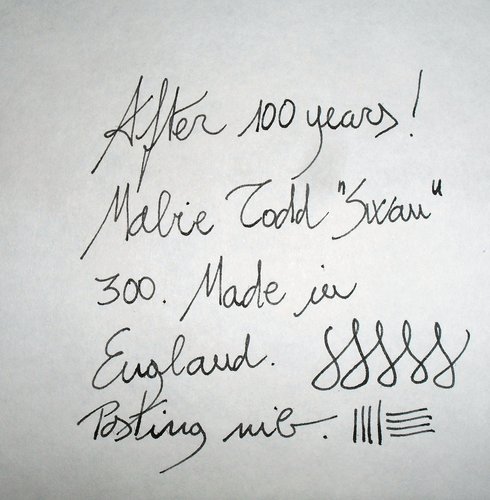 After 100 years!
Mabie Todd "Swan"
300. Made in
England.
Posting nib.